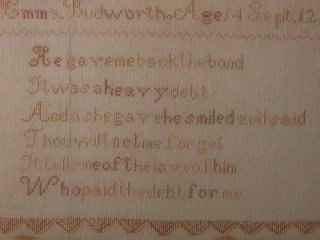 Emma Budworth Age 14 Sept 12
He gave me back the bond
It was a heavy debt
And as he gave he smiled and said
Thou wilt not me forget
It tells me of the love of him
Who paid the debt for me